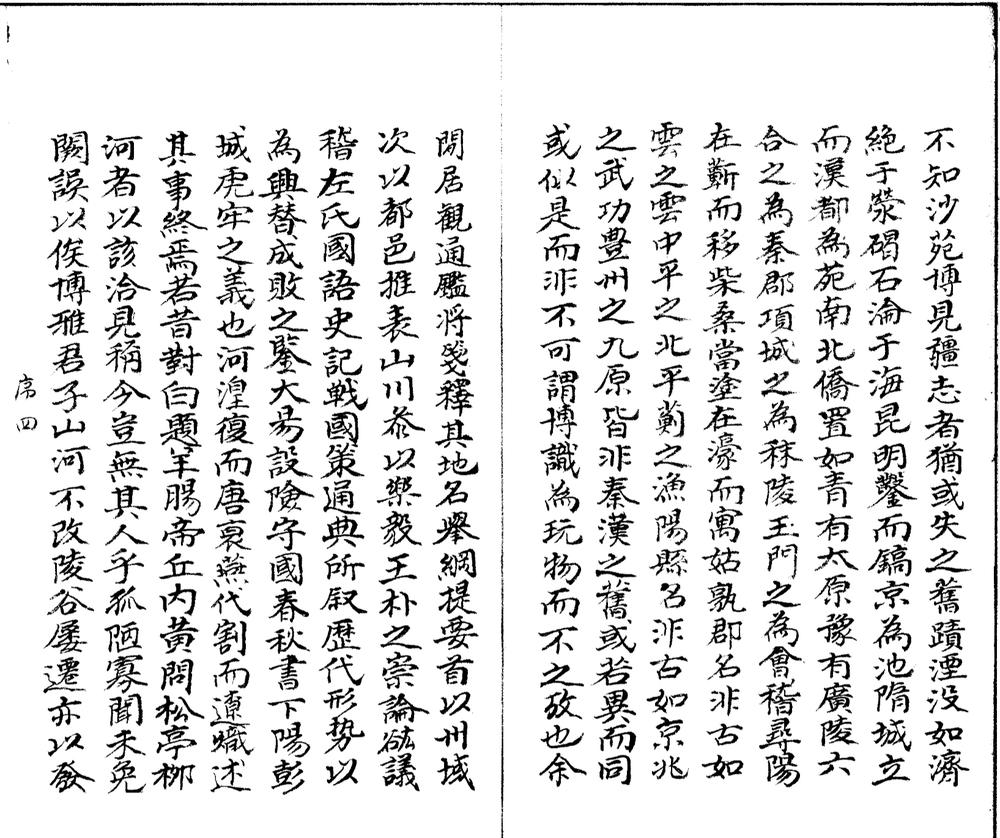 不知沙苑博見疆志者猶或失之舊蹟湮没如濟
絶于滎碣石淪于海昆明鑿而鎬京為池隋城立
而漢都為苑南北僑置如青有太原豫有廣陵六
合之為秦郡項城之為秣陵玉門之為會稽尋陽
在蘄而移柴桑當塗在濠而寓姑孰郡名非古如
雲之雲中平之北平薊之漁陽縣名非古如京兆
之武功豊州之九原皆非秦漢之舊或若異而同
或似是而非不可謂博識為玩物而不之攷也余
閒居觀通鑑將箋釋其地名舉綱提要首以州域
次以都邑推表山川叅以樂毅王朴之崇論谹議
稽左氏國語史記戰國策通典所叙歷代形勢以
為興替成敗之鑒大昜設險守國春秋書下陽彭
城虎牢之義也河湟復而唐衰燕代割而遼熾述
其事終焉若昔對白題羊腸帝丘内黄問松亭栁
河者以該洽見稱今豈無其人乎孤陋寡聞未免
闕誤以俟博雅君子山河不改陵谷屢遷亦以發
序四